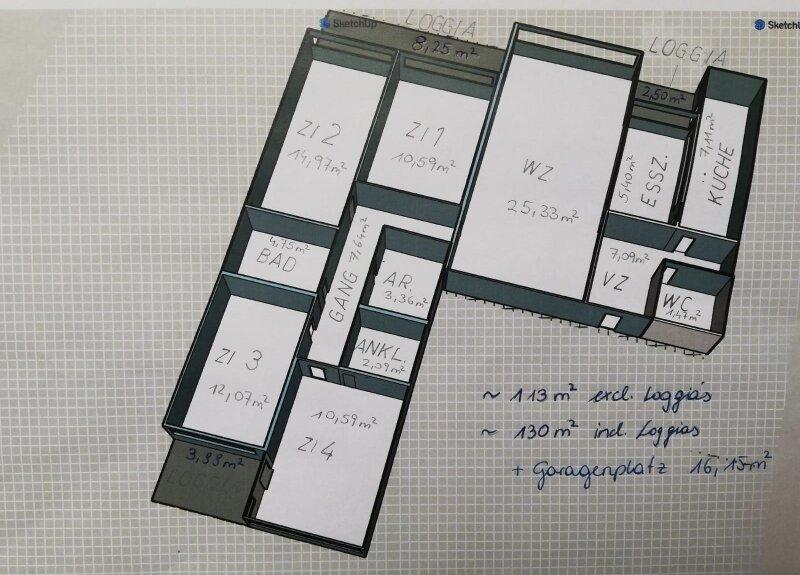 SketchUp
SketchU
LOGGIA
8,25 m²
LOGGIA
2,50 m²
ZI 2
14,97m²
ZI 1
10,59m²
WZ
25,33m²
5,40m²
ESSZ.
7,11m²
KÜCHE
4,75m²
BAD
GANG 7,64m²
AR.
3,36m²
7,09m²
VZ
WC
1,47m²
ANKL.
2,09m²
ZI 3
12,07m²
10,59m²
ZI 4
3,88m²
LOGGIA
~ 113 m² excl. Loggias
~ 130 m² incl. Loggias
+ Garagenplatz 16,15m²